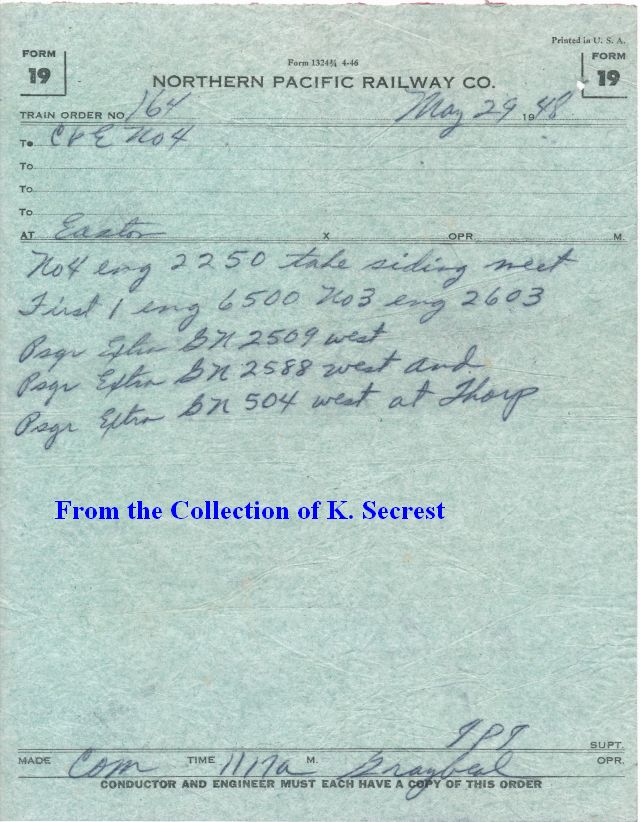 Printed in U. S. A.
FORM 19
Form 1324¾ 4-46
FORM 19
NORTHERN PACIFIC RAILWAY CO.
TRAIN ORDER NO. 164 May 29 1948
To C&E No 4
To
To
To
AT Easton X OPR. M.
No4 eng 2250 take siding meet
First 1 eng 6500 No3 eng 2603
Psgr Extra GN 2509 west
Psgr Extra GN 2588 west and
Psgr Extra GN 504 west at Thorp
From the Collection of K. Secrest
SUPT.
MADE Com TIME 1117a M. Graybeal OPR.
CONDUCTOR AND ENGINEER MUST EACH HAVE A COPY OF THIS ORDER